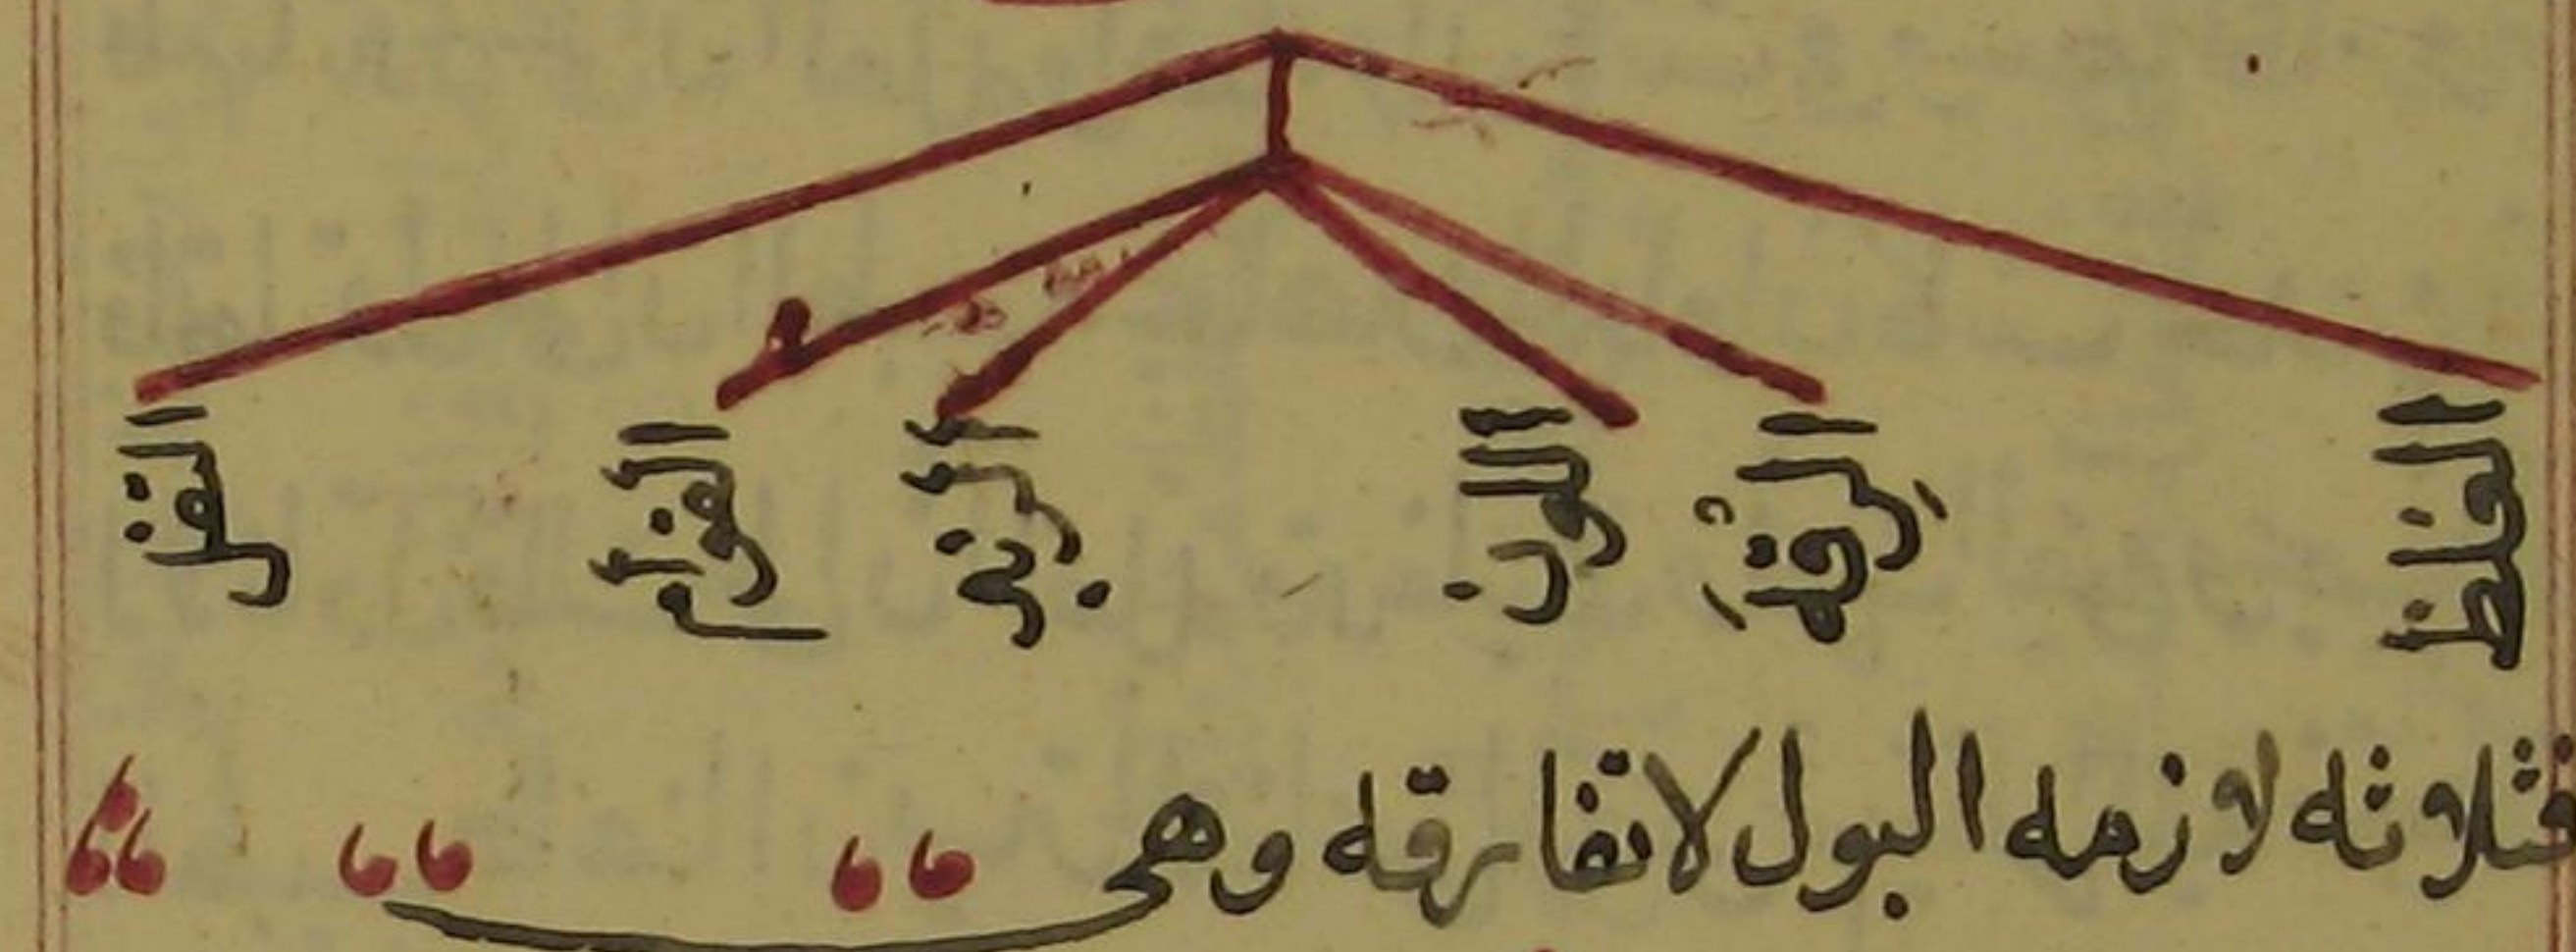 الغلظ
الرقه
اللون
الزبد
القوام
الثفل
فثلاثه لازمه البول لاتفارقه وهى